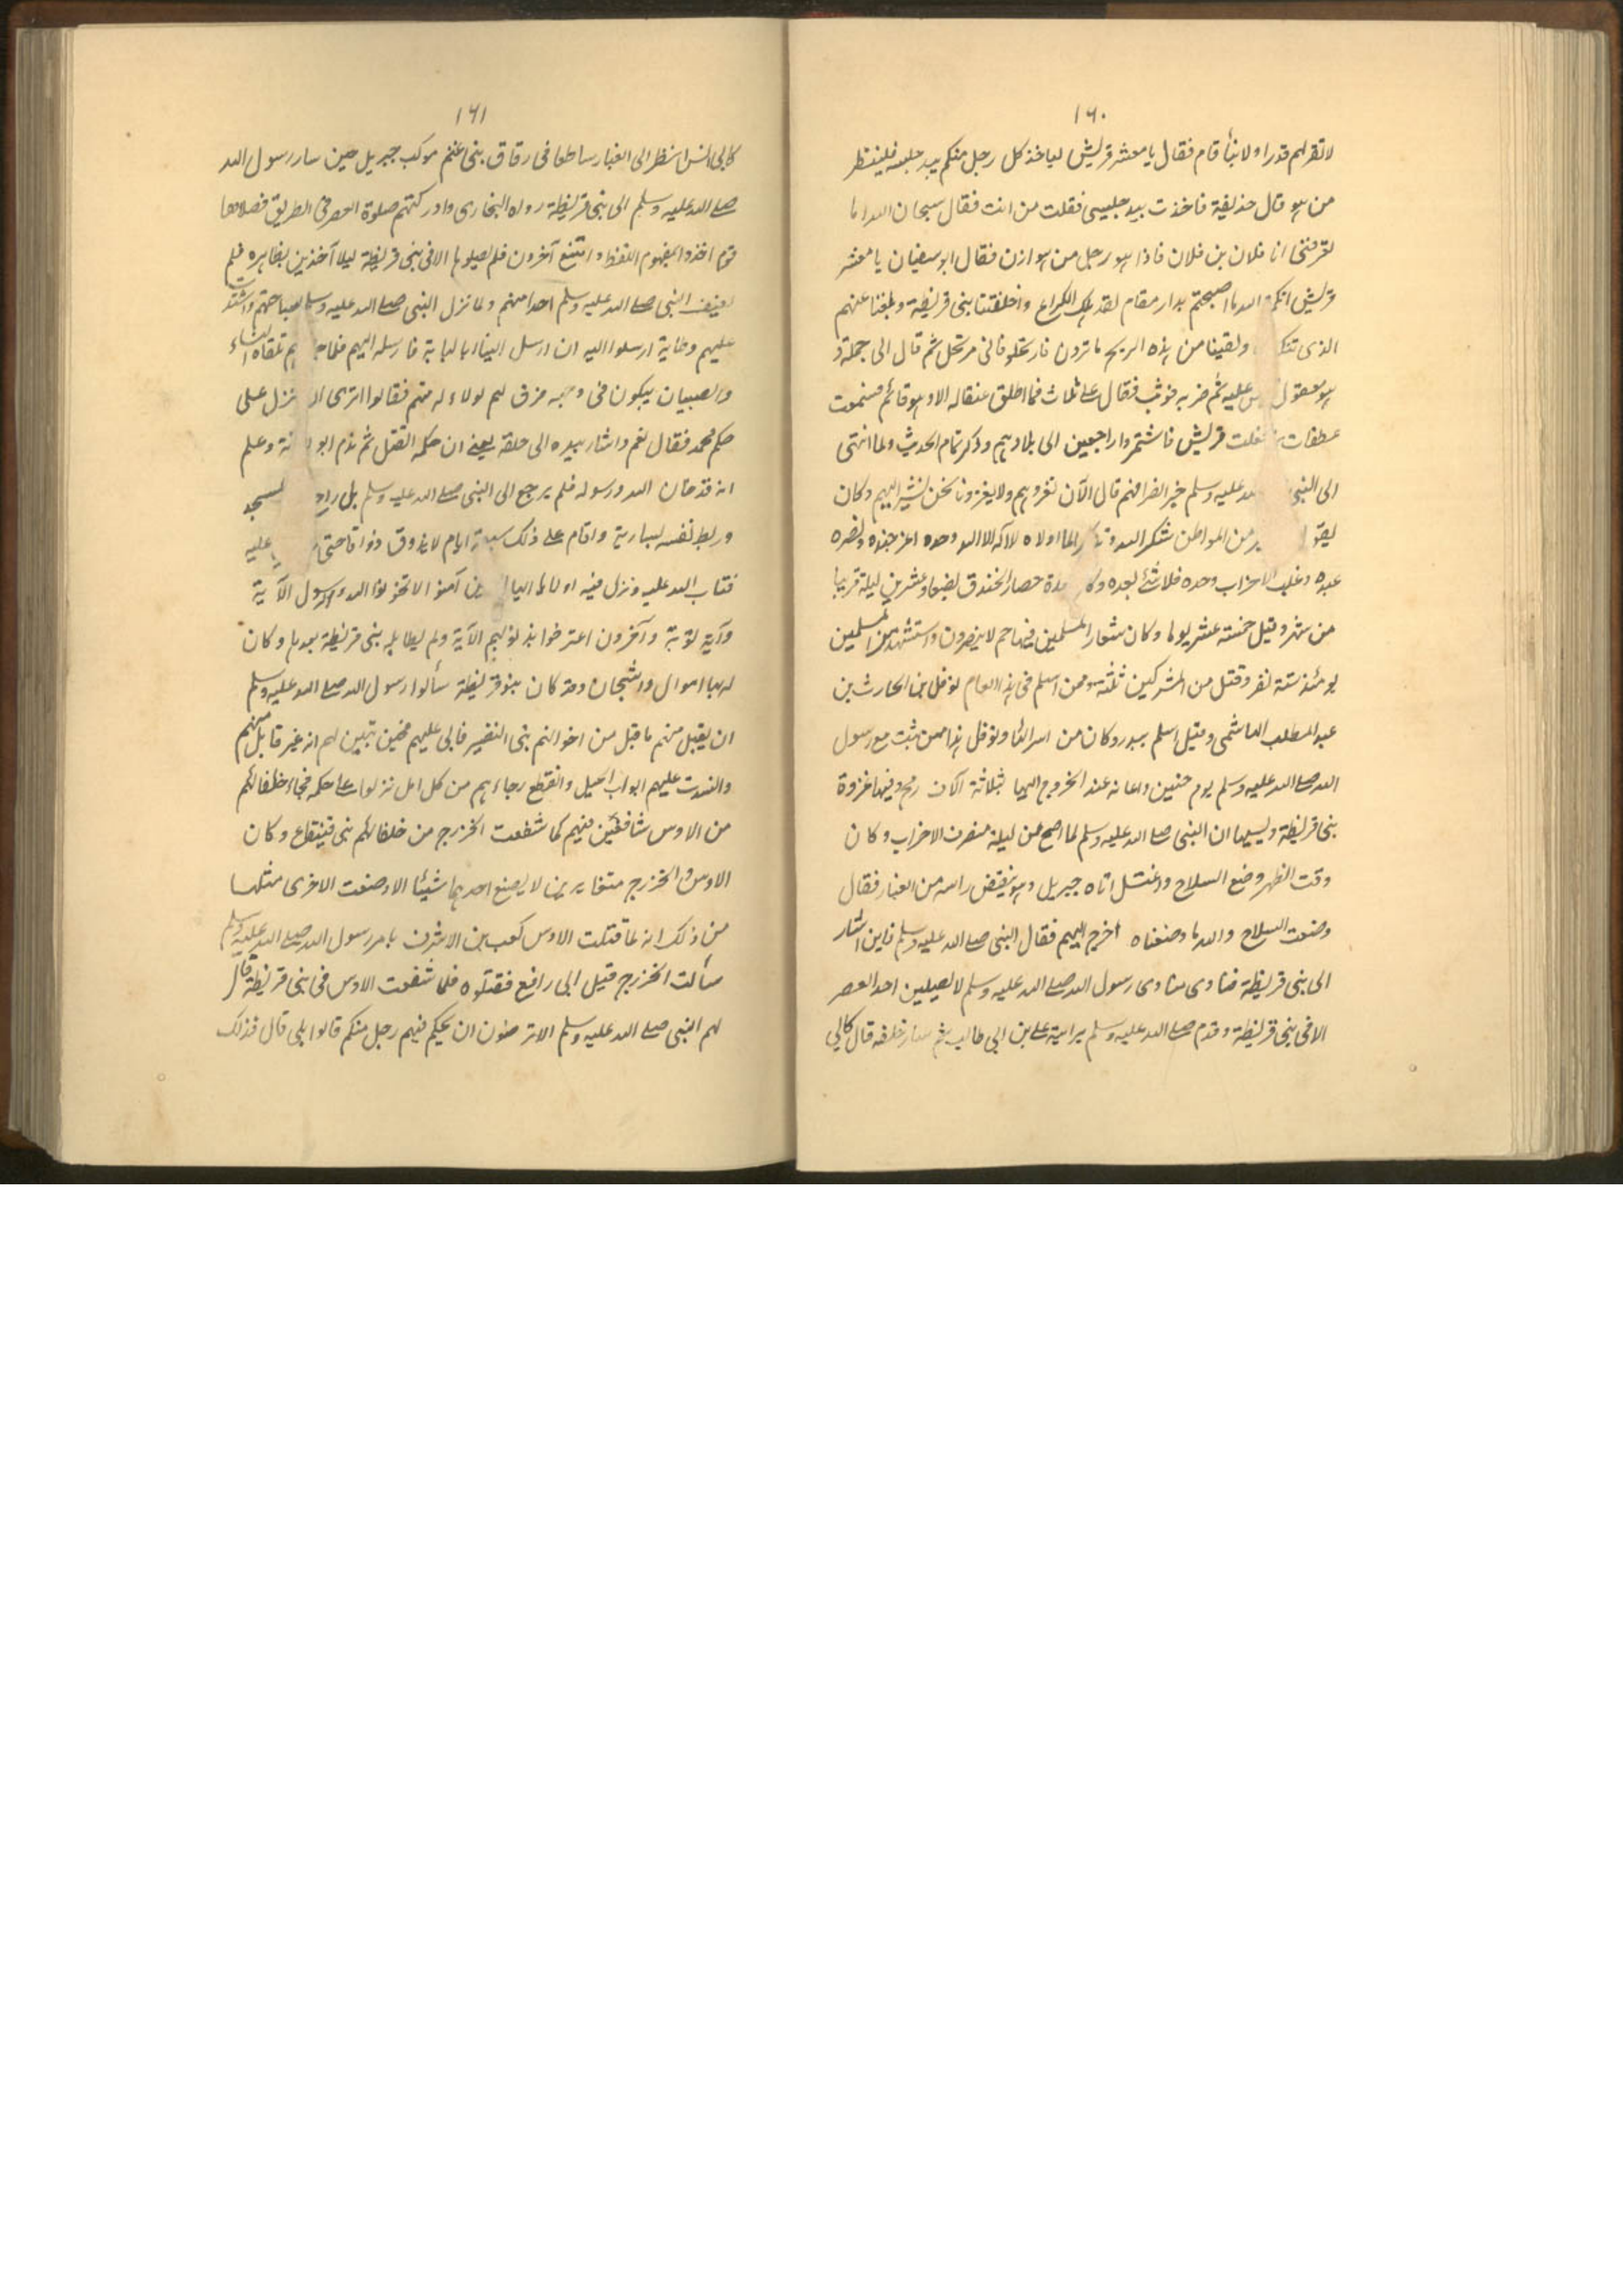 ١٦٠
لا تقر لهم قدرا ولا بناء قام فقال يا معشر قريش لياخذ كل رجل منكم بيد جليسه فلينظر
من هو قال حذيفة فاخذت بيد جليسى فقلت من انت فقال سبحان الله اما
تعرفنى انا فلان بن فلان فاذا هو رجل من هوازن فقال ابو سفيان يا معشر
قريش انكم الله ما اصبحتم بدار مقام لقد هلك الكراع واخلفتنا بنى قريظة وبلغنا عنهم
الذى ولقينا من هذه الريح ما ترون فارتحلوا فانى مرتحل ثم قال الى جمله و
هو معقول عليه ثم ضربه فوثب فقال على ثلاث فما اطلق عقاله الا وهو قائم فسمعت
غطفان قريش فاشتمروا راجعين الى بلادهم وذكر تمام الحديث ولما انتهى
الى النبى عليه وسلم خبر انصرافهم قال الآن نغزوهم ولا يغزونا نحن نسير اليهم وكان
من المواطن شكر الله لما اولاه لا اله الا الله وحده اعز جنده ونصر
عبده وغلب الاحزاب وحده فلا شئ بعده مدة حصار الخندق بضعا وعشرين ليلة قريبا
من شهر وقيل خمسة عشر يوما وكان شعار المسلمين فيها حم لا ينصرون واستشهد من المسلمين
يومئذ ستة نفر وقتل من المشركين ثلثة وممن اسلم فى هذا العام نوفل بن الحارث بن
عبد المطلب الهاشمى وقيل اسلم ببدر وكان من اسرائها ونوفل هذا ممن ثبت مع رسول
الله صلى الله عليه وسلم يوم حنين واعانه عند الخروج اليها بثلاثة آلاف رمح وفيها غزوة
بنى قريظة وسببها ان النبى صلى الله عليه وسلم لما اصبح من ليلة منصرف الاحزاب وكان
وقت الظهر وضع السلاح واغتسل اتاه جبريل وهو ينفض راسه من الغبار فقال
وضعت السلاح والله ما وضعناه اخرج اليهم فقال النبى صلى الله عليه وسلم فاين اشار
الى بنى قريظة فنادى منادى رسول الله صلى الله عليه وسلم لا يصلين احد العصر
الا فى بنى قريظة وقدم صلى الله عليه وسلم برايته على بن ابى طالب ثم سار خلفه قال كانى
١٦١
كانى انس انظر الى الغبار ساطعا فى زقاق بنى غنم موكب جبريل حين سار رسول الله
صلى الله عليه وسلم الى بنى قريظة رواه البخارى وادركتهم صلوة العصر فى الطريق فصلاها
قوم اخذوا بمفهوم اللفظ وامتنع آخرون فلم يصلوها الا فى بنى قريظة ليلا آخذين بظاهره فلم
يعنف النبى صلى الله عليه وسلم احدا منهم ولما نزل النبى صلى الله عليه وسلم بساحتهم واشتدت
عليهم ارسلوا اليه ان ارسل الينا ابا لبابة فارسله اليهم فلما تلقاه النساء
والصبيان يبكون فى وجهه فرق لهم لولاء له منهم فقالوا اترى ننزل على
حكم محمد فقال نعم واشار بيده الى حلقه يعنى ان حكمه القتل ثم ندم ابو وعلم
انه قد خان الله ورسوله فلم يرجع الى النبى صلى الله عليه وسلم بل
وربط نفسه بسارية واقام على ذلك سبعة ايام لا يذوق ذواقا حتى عليه
فتاب الله عليه ونزل فيه اولا يا ايها آمنوا لا تخونوا الله والرسول الآية
وآية توبة وآخرون اعترفوا بذنوبهم الآية ولم يطا بلد بنى قريظة بعدها وكان
له بها اموال واشجان وقد كان بنو قريظة سألوا رسول الله صلى الله عليه وسلم
ان يقبل منهم ما قبل من اخوانهم بنى النضير فابى عليهم فحين تبين لهم انه غير قابل منهم
وانسدت عليهم ابواب الحيل وانقطع رجاءهم من كل امل نزلوا على حكمه فجاء حلفائهم
من الاوس شافعين فيهم كما شفعت الخزرج من حلفائهم بنى قينقاع وكان
الاوس والخزرج متغايرين لا يصنع احدهما شيئا الا وصنعت الاخرى مثلها
من ذلك انه لما قتلت الاوس كعب بن الاشرف بامر رسول الله صلى الله عليه وسلم
سألت الخزرج قتل ابى رافع فقتلوه فلما شفعت الاوس فى بنى قريظة قال
لهم النبى صلى الله عليه وسلم الا ترضون ان يحكم فيهم رجل منكم قالوا بلى قال فذلك